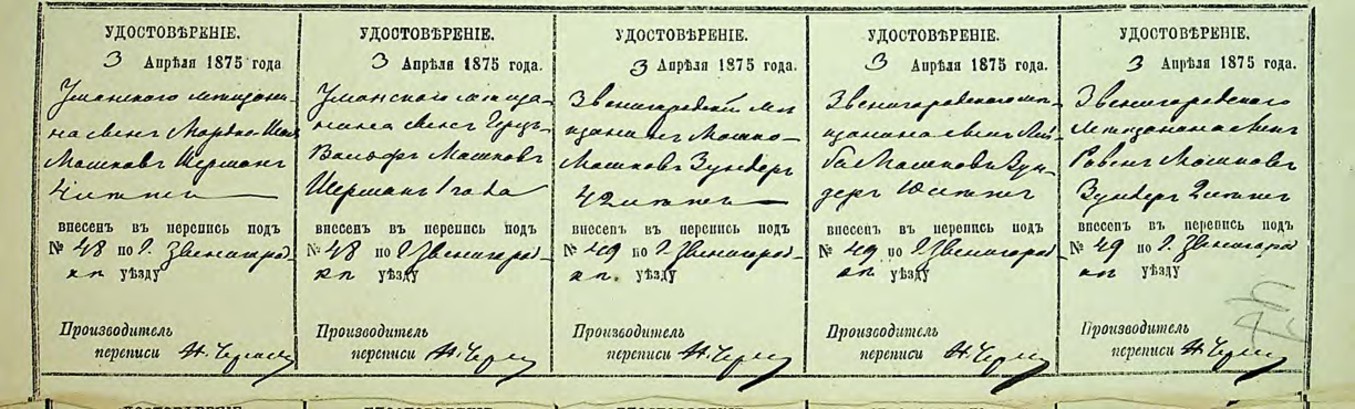 УДОСТОВѢРЕНІЕ.
3 Апрѣля 1875 года
Уманского мѣщани-
на сынъ Мордко-
Машковъ Шерманъ
4 лѣтъ
внесенъ въ перепись подъ
№ 48 по г. Звенигород-
уѣзду
Производитель
переписи
УДОСТОВѢРЕНІЕ.
3 Апрѣля 1875 года.
Уманского мѣща-
нина сынъ Герш-
Машковъ
Шерманъ 1 года
внесенъ въ перепись подъ
№ 48 по г. Звенигород-
уѣзду
Производитель
переписи
УДОСТОВѢРЕНІЕ.
3 Апрѣля 1875 года.
Звенигородскій мѣ-
щанинъ Мошко-
Мошковъ Зундеръ
42 лѣтъ
внесенъ въ перепись подъ
№ 49 по г. Звенигород-
уѣзду
Производитель
переписи
УДОСТОВѢРЕНІЕ.
3 Апрѣля 1875 года.
Звенигородского мѣ-
щанина сынъ Лей-
ба Мошковъ Зун-
деръ 10 лѣтъ
внесенъ въ перепись подъ
№ 49 по г. Звенигород
уѣзду
Производитель
переписи
УДОСТОВѢРЕНІЕ.
3 Апрѣля 1875 года.
Звенигородского
мѣщанина сынъ
Мошковъ
Зундеръ 2 лѣтъ
внесенъ въ перепись подъ
№ 49 по г. Звенигород
уѣзду
Производитель
переписи